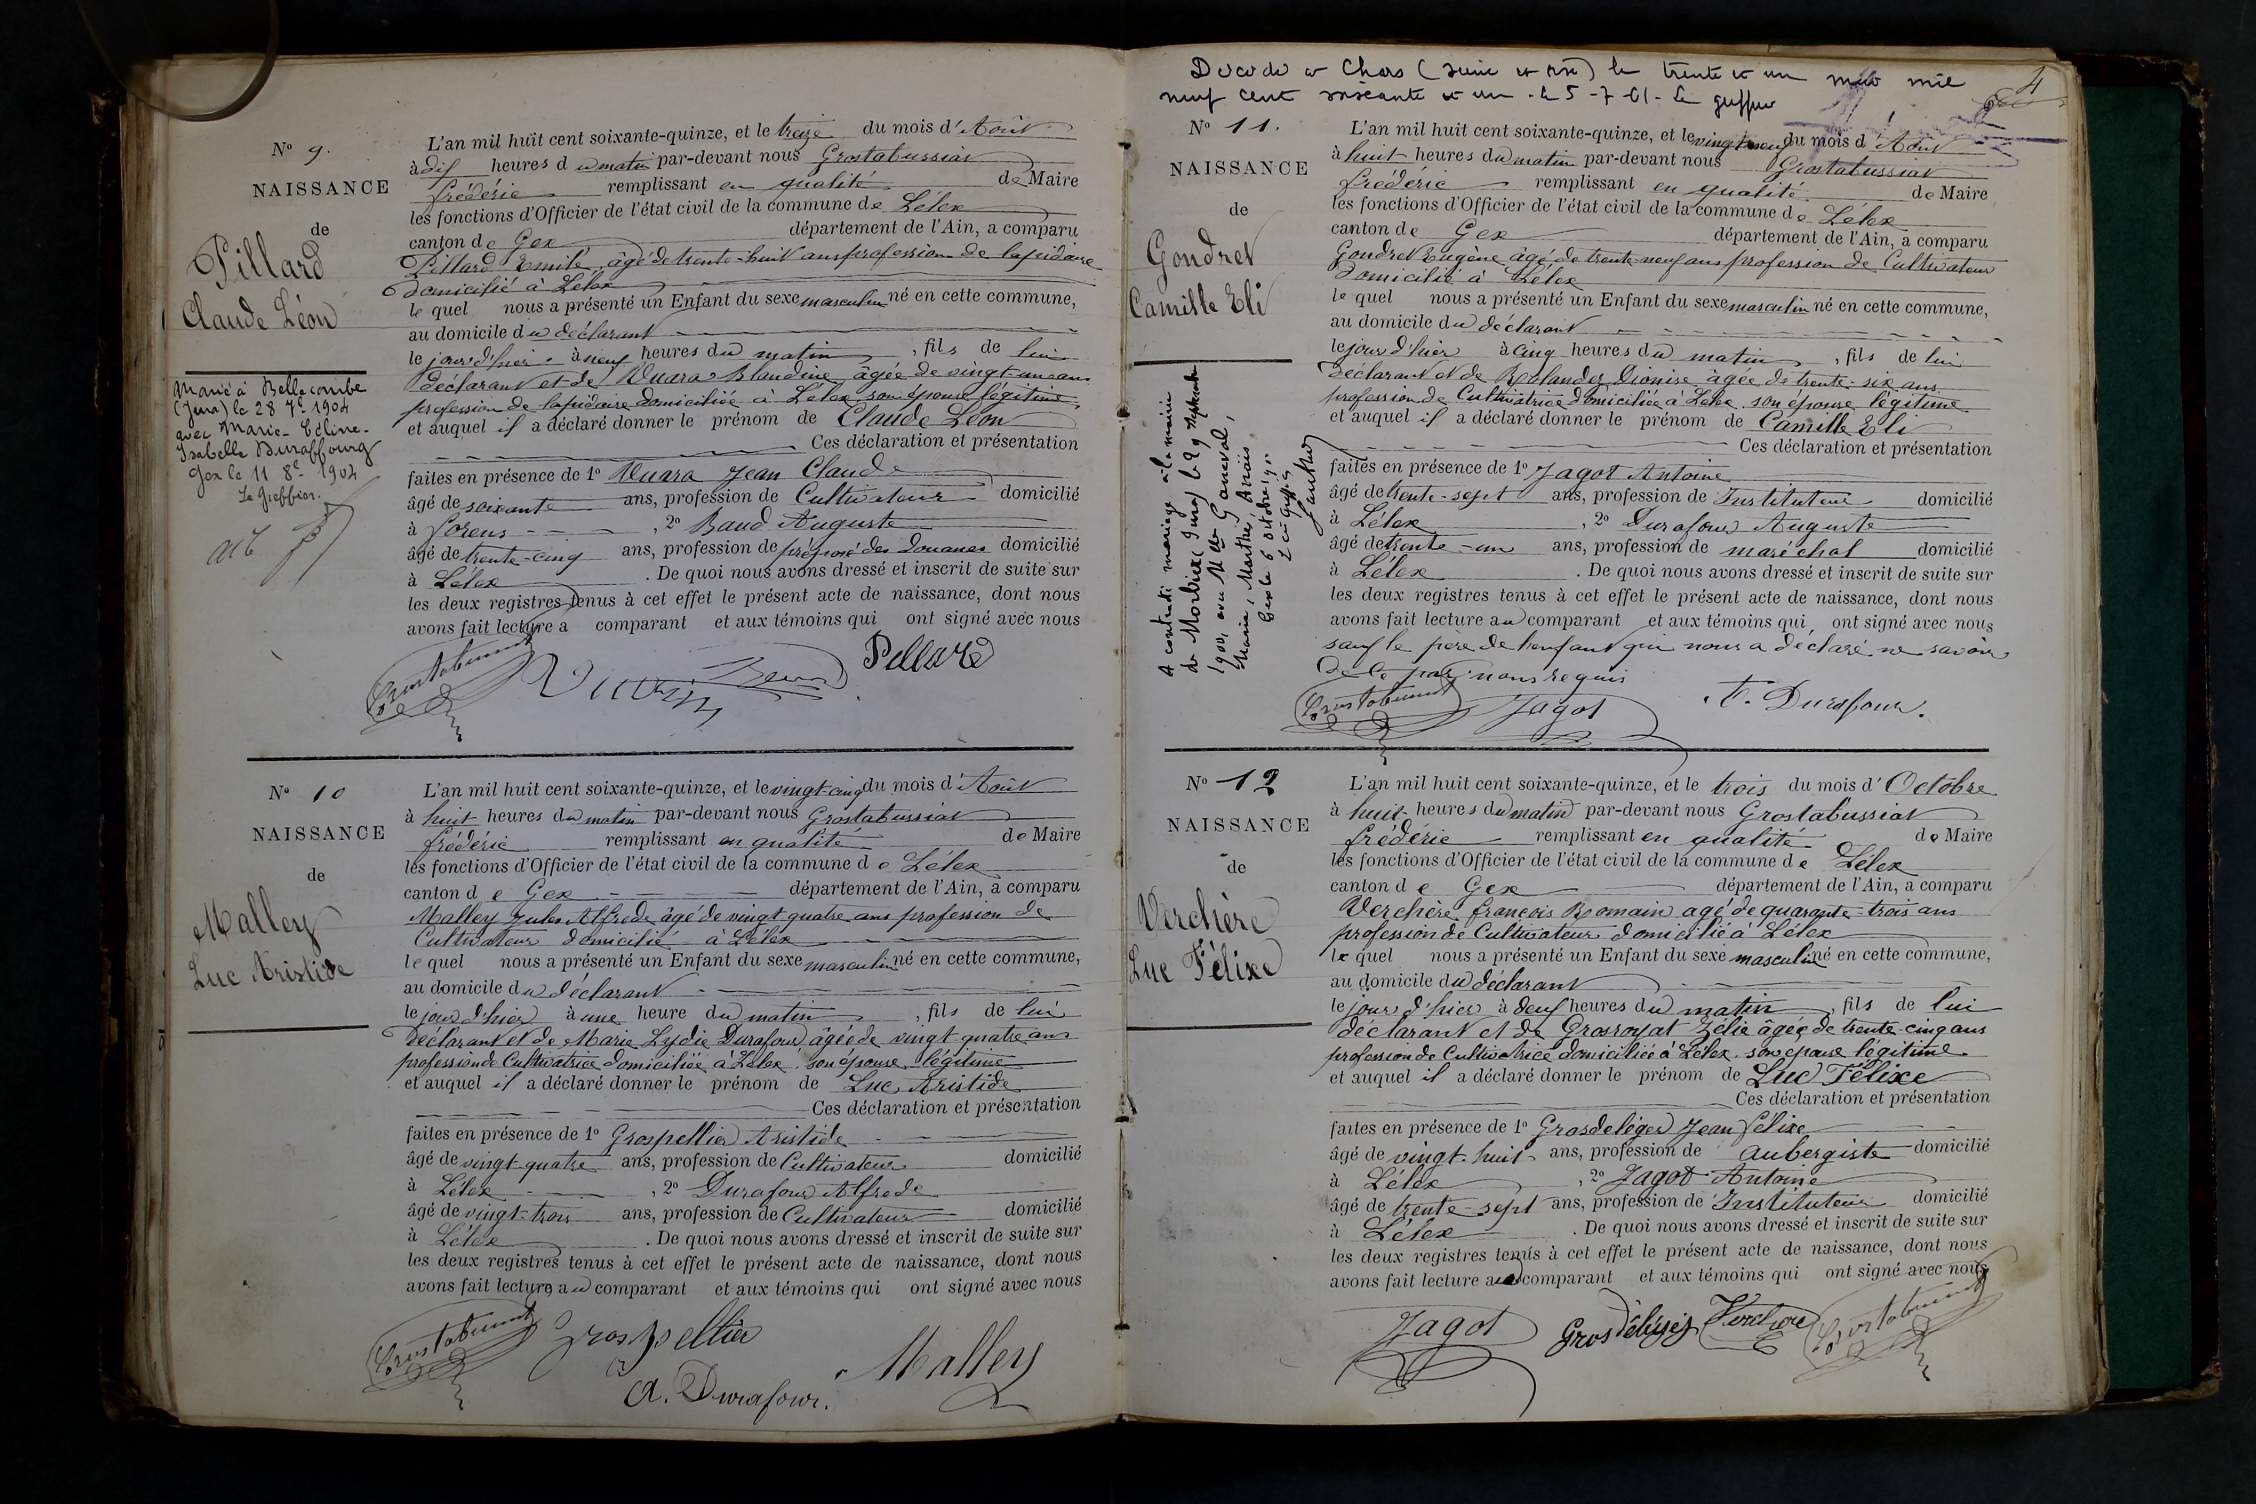 N° 9.
NAISSANCE
de
Pillard
Claude Léon
Marié à Bellecombe
(Jura) le 28 7e 1904
avec Marie-Céline-
Isabelle Duraffourg
Gex le 11 8e 1904
Le Greffier.
L'an mil huit cent soixante-quinze, et le treize du mois d'Août
à dix heures du matin par-devant nous Grostabussiat
frédéric remplissant en qualité de Maire
les fonctions d'Officier de l'état civil de la commune de Lélex
canton de Gex département de l'Ain, a comparu
Pillard Emile, âgé de trente-huit ans profession de lapidaire
domicilié à Lélex
le quel nous a présenté un Enfant du sexe masculin né en cette commune,
au domicile du déclarant
le jour d'hier à neuf heures du matin, fils de lui
déclarant et de Vuara Blandine âgée de vingt-un ans
profession de lapidaire domiciliée à Lélex son épouse légitime
et auquel il a déclaré donner le prénom de Claude Léon
Ces déclaration et présentation
faites en présence de 1° Vuara Jean Claude
âgé de soixante ans, profession de Cultivateur domicilié
à forens, 2° Baud Auguste
âgé de trente-cinq ans, profession de préposé des Douanes domicilié
à Lélex. De quoi nous avons dressé et inscrit de suite sur
les deux registres tenus à cet effet le présent acte de naissance, dont nous
avons fait lecture a comparant et aux témoins qui ont signé avec nous
Pillard
N° 10
NAISSANCE
de
Malley
Luc Aristide
L'an mil huit cent soixante-quinze, et le vingt-cinq du mois d'Août
à huit heures du matin par-devant nous Grostabussiat
frédéric remplissant en qualité de Maire
les fonctions d'Officier de l'état civil de la commune de Lélex
canton de Gex département de l'Ain, a comparu
Malley Jules Alfrede âgé de vingt quatre ans profession de
Cultivateur domicilié à Lélex
le quel nous a présenté un Enfant du sexe masculin né en cette commune,
au domicile du déclarant
le jour d'hier à une heure du matin, fils de lui
déclarant et de Marie Lydie Durafour âgée de vingt-quatre ans
profession de Cultivatrice domiciliée à Lélex son épouse légitime
et auquel il a déclaré donner le prénom de Luc Aristide
Ces déclaration et présentation
faites en présence de 1° Grospellier Aristide
âgé de vingt-quatre ans, profession de Cultivateur domicilié
à Lélex, 2° Durafour Alfrede
âgé de vingt-trois ans, profession de Cultivateur domicilié
à Lélex. De quoi nous avons dressé et inscrit de suite sur
les deux registres tenus à cet effet le présent acte de naissance, dont nous
avons fait lecture au comparant et aux témoins qui ont signé avec nous
Grospellier
A. Durafour.
Malley
4
Décédé à (Seine et Oise) le trente et un mil
neuf cent soixante et un. le 5-7-61- Le greffier
N° 11.
NAISSANCE
de
Gondret
Camille Eli
A contracté mariage à la mairie
de Morbier (Jura) le 29 septembre
avec Melle
Marie, Marthe, Anaïs
Gex le 6 octobre
Le Greffier
L'an mil huit cent soixante-quinze, et le vingt-neuf du mois d'Août
à huit heures du matin par-devant nous Grostabussiat
frédéric remplissant en qualité de Maire
les fonctions d'Officier de l'état civil de la commune de Lélex
canton de Gex département de l'Ain, a comparu
Gondret Eugène âgé de trente-neuf ans profession de Cultivateur
domicilié à Lélex
le quel nous a présenté un Enfant du sexe masculin né en cette commune,
au domicile du déclarant
le jour d'hier à cinq heures du matin, fils de lui
déclarant et de Rolandez Dionise âgée de trente-six ans
profession de Cultivatrice domiciliée à Lélex son épouse légitime
et auquel il a déclaré donner le prénom de Camille Eli
Ces déclaration et présentation
faites en présence de 1° Jagot Antoine
âgé de trente-sept ans, profession de Instituteur domicilié
à Lélex, 2° Durafour Auguste
âgé de trente-un ans, profession de maréchal domicilié
à Lélex. De quoi nous avons dressé et inscrit de suite sur
les deux registres tenus à cet effet le présent acte de naissance, dont nous
avons fait lecture au comparant et aux témoins qui ont signé avec nous
sauf le père de l'enfant qui nous a déclaré ne savoir
de ce par nous requis
Jagot
Durafour.
N° 12
NAISSANCE
de
Verchère
Luc Félixe
L'an mil huit cent soixante-quinze, et le trois du mois d'Octobre
à huit heures du matin par-devant nous Grostabussiat
frédéric remplissant en qualité de Maire
les fonctions d'Officier de l'état civil de la commune de Lélex
canton de Gex département de l'Ain, a comparu
Verchère françois Romain agé de quarante-trois ans
profession de Cultivateur domicilié à Lélex
le quel nous a présenté un Enfant du sexe masculin né en cette commune,
au domicile du déclarant
le jour d'hier à deux heures du matin, fils de lui
déclarant et de Grosroyat Zélie âgée de trente-cinq ans
profession de Cultivatrice domiciliée à Lélex son épouse légitime
et auquel il a déclaré donner le prénom de Luc Félixe
Ces déclaration et présentation
faites en présence de 1° Grosdeléger Jean félixe
âgé de vingt-huit ans, profession de aubergiste domicilié
à Lélex, 2° Jagot Antoine
âgé de trente-sept ans, profession de Instituteur domicilié
à Lélex. De quoi nous avons dressé et inscrit de suite sur
les deux registres tenus à cet effet le présent acte de naissance, dont nous
avons fait lecture au comparant et aux témoins qui ont signé avec nous
Jagot
Grosdéléger
Verchère